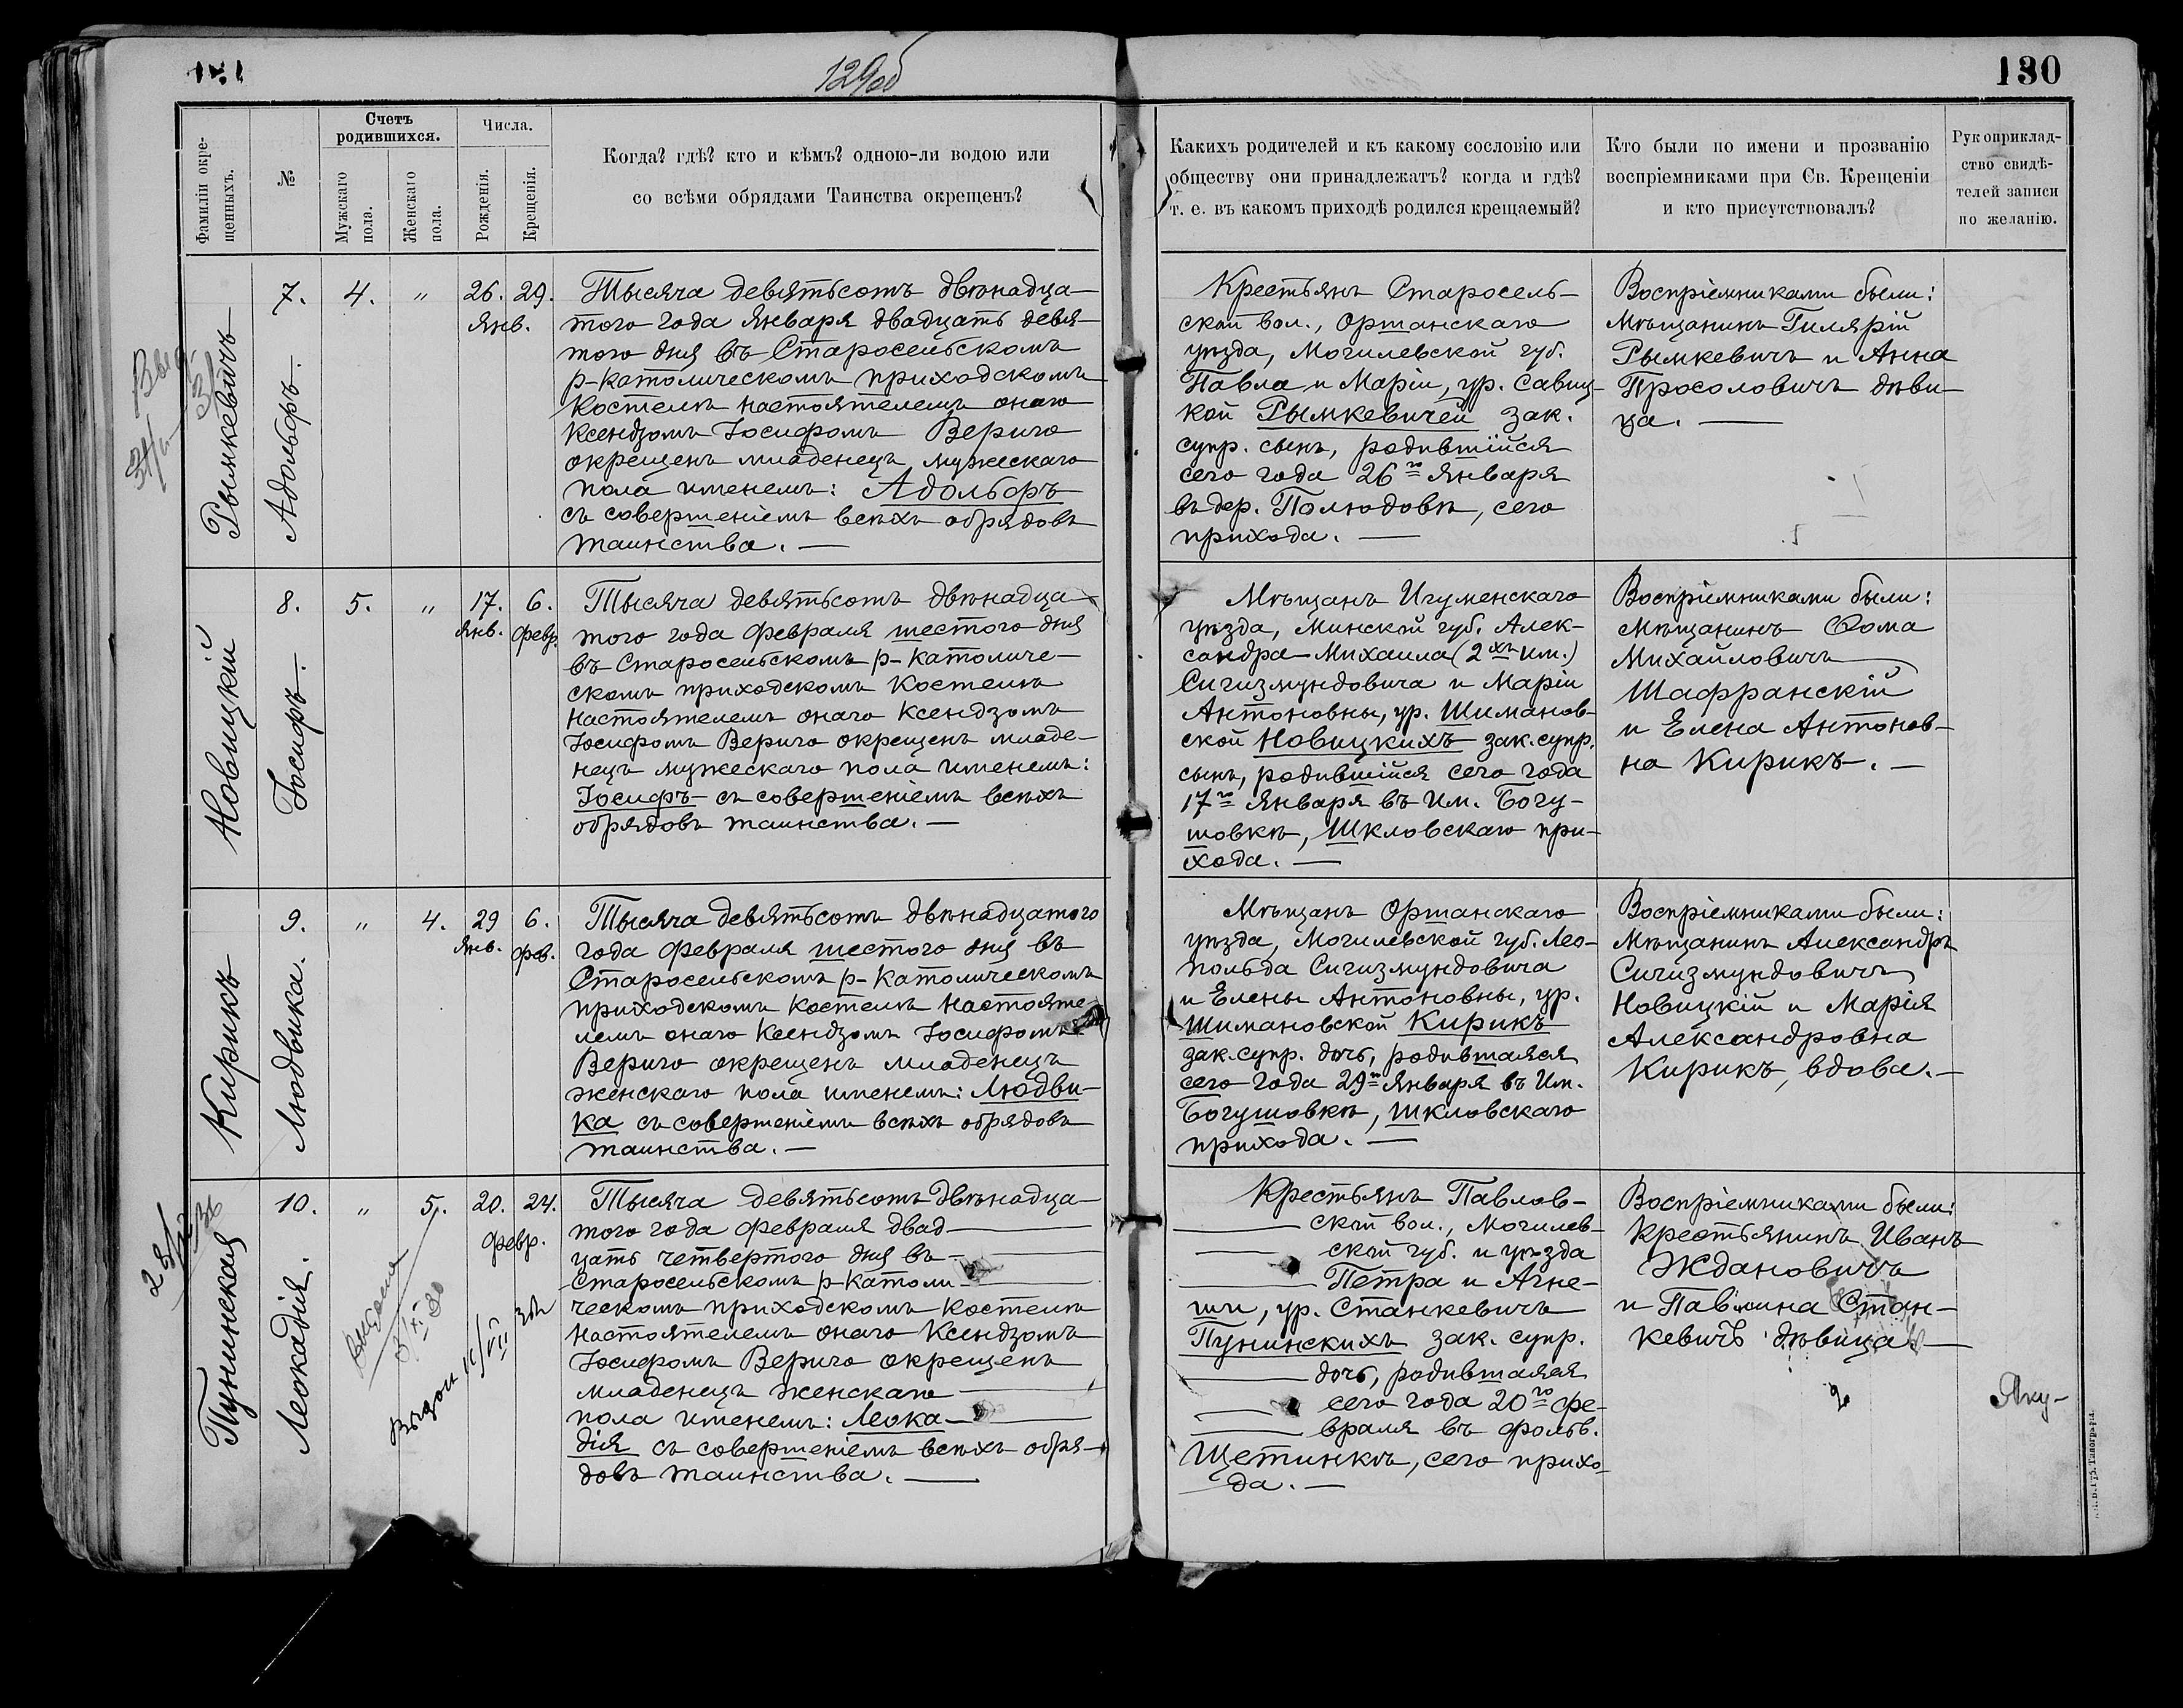 129об
130
Фамиліи окре-
щенныхъ.
№
Счетъ
родившихся.
Мужскаго
пола.
Женскаго
пола.
Числа.
Рожденія.
Крещенія.
Когда? гдѣ? кто и кѣмъ? одною-ли водою или
со всѣми обрядами Таинства окрещенъ?
Какихъ родителей и къ какому сословію или
обществу они принадлежатъ? когда и гдѣ?
т. е. въ какомъ приходѣ родился крещаемый?
Кто были по имени и прозванію
воспріемниками при Св. Крещеніи
и кто присутствовалъ?
Рукоприклад-
ство свидѣ-
телей записи
по желанію.
Рымкевичъ
7.
Адольфъ.
4.
"
26. 29.
Янв.
Тысяча девятьсотъ двѣнадца-
того года Января двадцать девя-
того дня въ Старосельскомъ
р-католическомъ приходскомъ
Костелѣ настоятелемъ онаго
Ксендзомъ Іосифомъ Верыго
окрещенъ младенецъ мужескаго
пола именемъ: Адольфъ
съ совершеніемъ всѣхъ обрядовъ
таинства. —
Крестьянъ Старосель-
ской вол., Оршанскаго
уѣзда, Могилевской губ.
Павла и Маріи, ур. Савиц-
кой Рымкевичей зак.
супр. сынъ, родившійся
сего года 26го Января
въ дер. Полюдовѣ, сего
прихода. —
Воспріемниками были:
Мѣщанинъ Гилярій
Рымкевичъ и Анна
Просоловичъ дѣви-
ца. —
Новицкій
8.
Іосифъ.
5.
"
17. 6.
Янв. Февр.
Тысяча девятьсотъ двѣнадца-
того года Февраля шестого дня
въ Старосельскомъ р-католиче-
скомъ приходскомъ Костелѣ
настоятелемъ онаго Ксендзомъ
Іосифомъ Верыго окрещенъ младе-
нецъ мужескаго пола именемъ:
Іосифъ съ совершеніемъ всѣхъ
обрядовъ таинства. —
Мѣщанъ Игуменскаго
уѣзда, Минской губ. Алек-
сандра-Михаила (2хъ им.)
Сигизмундовича и Маріи
Антоновны, ур. Шиманов-
ской Новицкихъ зак. супр.
сынъ, родившійся сего года
17го Января въ им. Богу-
шовкѣ, Шкловскаго при-
хода. —
Воспріемниками были:
Мѣщанинъ Ѳома
Михайловичъ
Шафранскій
и Елена Антонов-
на Кирикъ. —
Кирикъ
9.
Людвика.
"
4.
29 6.
Янв. Фев.
Тысяча девятьсотъ двѣнадцатого
года Февраля шестого дня въ
Старосельскомъ р-католическомъ
приходскомъ Костелѣ настояте-
лемъ онаго Ксендзомъ Іосифомъ
Верыго окрещенъ младенецъ
женскаго пола именемъ: Людви-
ка съ совершеніемъ всѣхъ обрядовъ
таинства. —
Мѣщанъ Оршанскаго
уѣзда, Могилевской губ. Лео-
польда Сигизмундовича
и Елены Антоновны, ур.
Шимановской Кирикъ
зак. супр. дочь, родившаяся
сего года 29го Января въ им.
Богушовкѣ, Шкловскаго
прихода. —
Воспріемниками были:
Мѣщанинъ Александръ
Сигизмундовичъ
Новицкій и Марія
Александровна
Кирикъ, вдова. —
Пунинская
10.
Леокадія.
"
5.
20. 24.
Февр.
выдана
Тысяча девятьсотъ двѣнадца-
того года Февраля двад-
цать четвертого дня въ
Старосельскомъ р-католи-
ческомъ приходскомъ Костелѣ
настоятелемъ онаго Ксендзомъ
Іосифомъ Верыго окрещенъ
младенецъ женскаго
пола именемъ: Леока-
дія съ совершеніемъ всѣхъ обря-
довъ таинства. —
Крестьянъ Павлов-
ской вол., Могилев-
ской губ. и уѣзда
Петра и Агне-
ши, ур. Станкевичъ
Пунинскихъ зак. супр.
дочь, родившаяся
сего года 20го Фе-
враля въ фольв.
Щетинкѣ, сего прихо-
да. —
Воспріемниками были:
Крестьянинъ Иванъ
Ждановичъ
и Павлина Стан-
кевичъ дѣвица —
Яку-